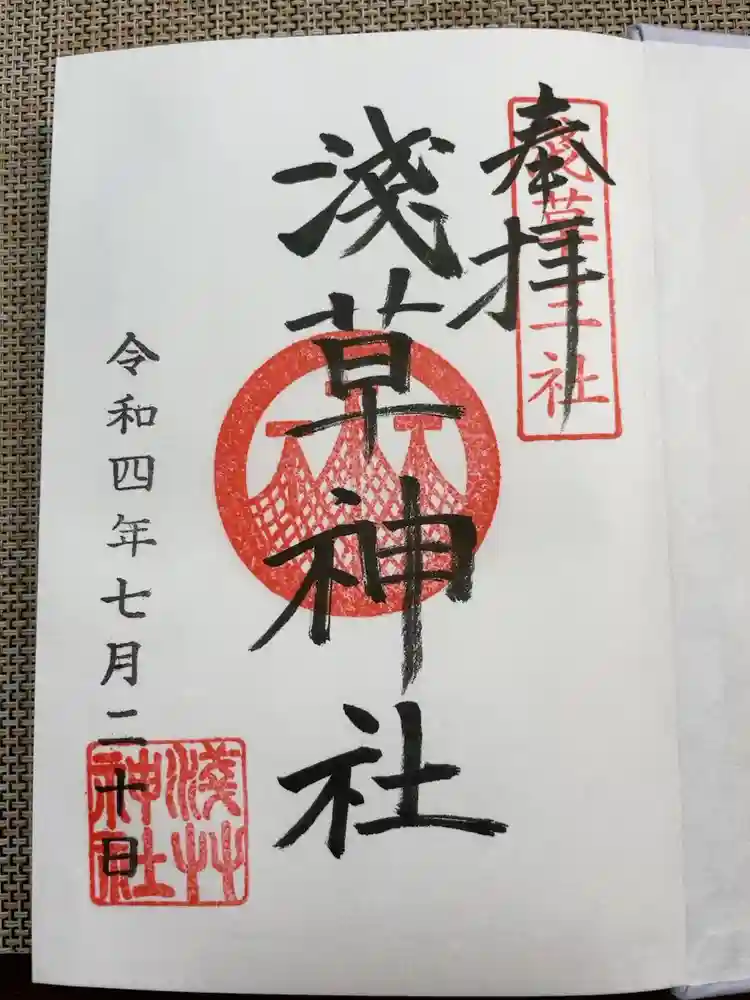 奉拝
浅草三社
淺草神社
令和四年七月二十日
淺艸神社